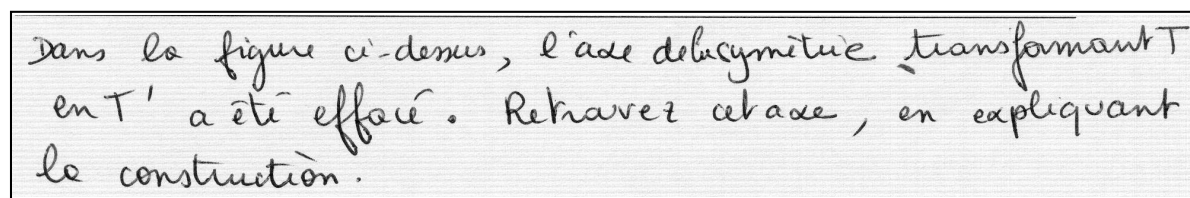 Dans la figure ci-dessus, l'axe de la symétrie transformant T
en T' a été effacé. Retrouvez cet axe, en expliquant
la construction.